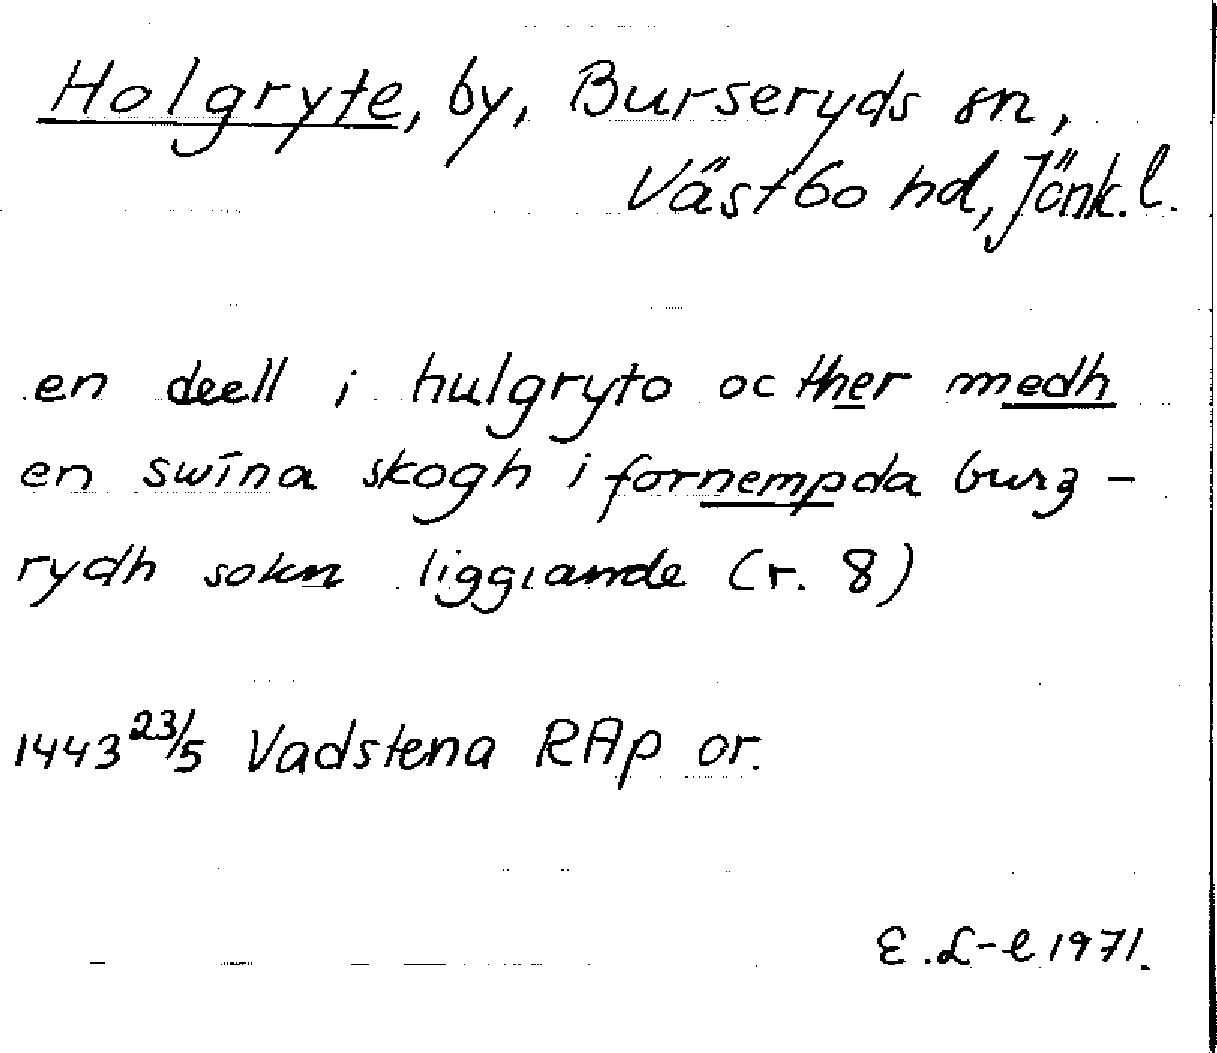 Holgryte, by, Burseryds sn,
Västbo hd, Jönk. l.
en deell i hulgryto oc ther medh
en swina skogh i fornempda burz-
rydh sokn liggiande (r. 8)
1443 23/5 Vadstena RAp or.
E. L-l 1971.